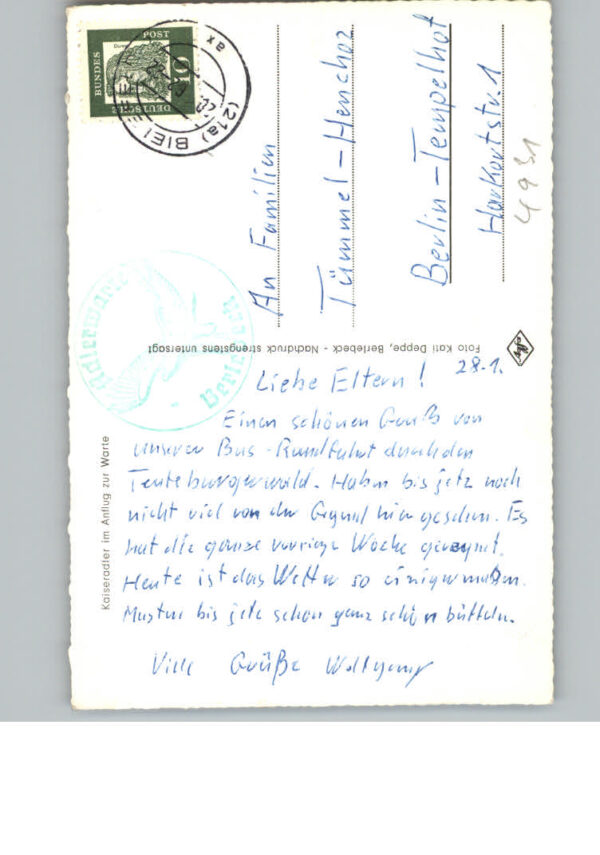 BUNDES POST
Dürer
10
DEUTSCHE
(21a) BIELEFELD
ax
An Familien
Tümmel-Henchoz
Berlin-Tempelhof
Harkortstr. 1
4931
Adlerwarte
Berlebeck
Foto Kati Deppe, Berlebeck - Nachdruck strengstens untersagt
Agfa
Kaiseradler im Anflug zur Warte
28.1.
Liebe Eltern!
Einen schönen Gruß von
unserer Bus-Rundfahrt durch den
Teuteburgerwald. Haben bis jetz noch
nicht viel von der Gegend hier gesehen. Es
hat die ganze vorrige Woche geregnet.
Heute ist das Wetter so einigermaßen.
Musten bis jetz schon ganz schön bütteln.
Viele Grüße Wolfgang